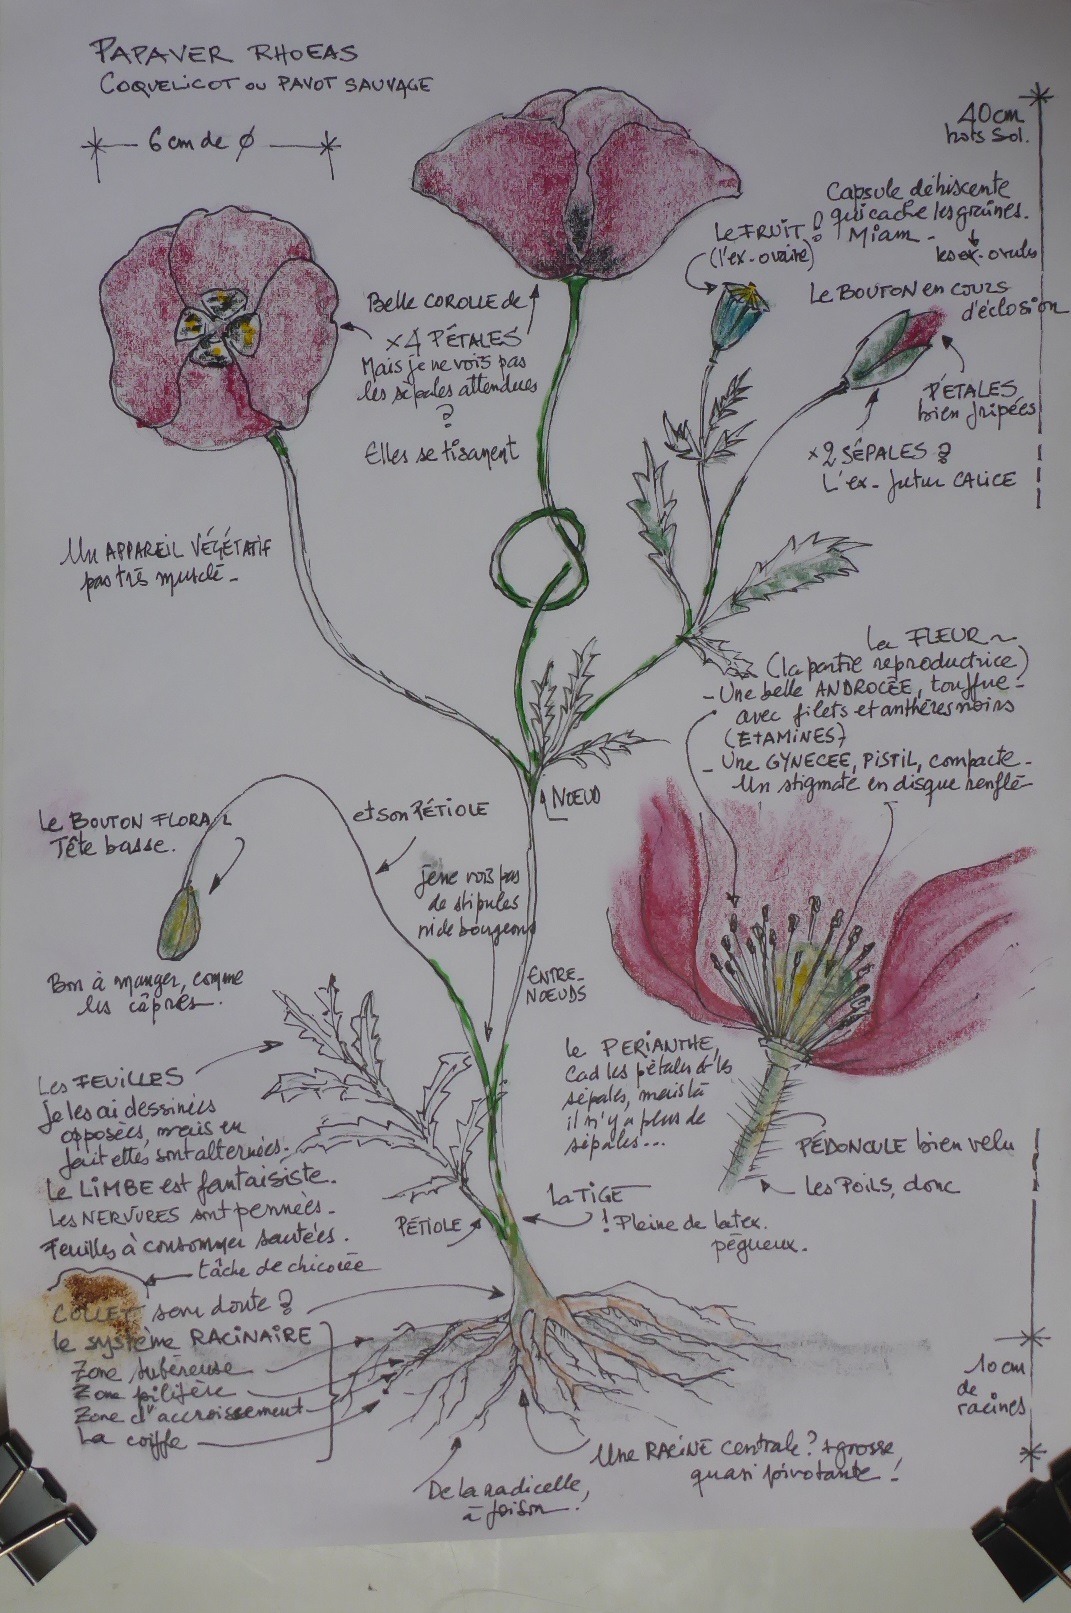 PAPAVER RHOEAS
COQUELICOT OU PAVOT SAUVAGE
6 cm de ø
40cm
hors sol.
Capsule déhiscente
qui cache les graines.
Miam -
les ex-ovules
Le FRUIT !
(l'ex-ovaire)
Le BOUTON en cours
d'éclosion
PÉTALES
bien fripées
x2 SÉPALES ?
L'ex-futur CALICE
Belle COROLLE de
x4 PÉTALES
Mais je ne vois pas
les sépales attendues
?
Elles se tirent
Un APPAREIL VÉGÉTATIF
pas très musclé -
La FLEUR ~
(la partie reproductrice)
- Une belle ANDROCÉE, touffue -
avec filets et anthères noirs
(ETAMINES)
- Une GYNECÉE, PISTIL, compacte -
Un stigmate en disque renflé
NOEUD
Le BOUTON FLORAL
Tête basse.
et son PÉTIOLE
je ne vois pas
de stipules
ni de bourgeons
Bon à manger, comme
les câpres.
ENTRE-
NOEUDS
Le PERIANTHE,
Cad les pétales & les
sépales, mais là
il n'y a plus de
sépales...
Les FEUILLES
je les ai dessinées
opposées, mais en
fait elles sont alternées.
Le LIMBE est fantaisiste.
Les NERVURES sont pennées -
Feuilles à consommer sautées.
PÉDONCULE bien velu
Les POILS, donc
La TIGE
! Pleine de latex.
pégueux.
PÉTIOLE
tâche de chicorée
COLLET sans doute ?
Le système RACINAIRE
Zone subéreuse
Zone pilifère
Zone d'accroissement
La coiffe
10cm
de
racines
Une RACINE centrale ? + grosse,
quasi pivotante !
De la radicelle,
à foison.